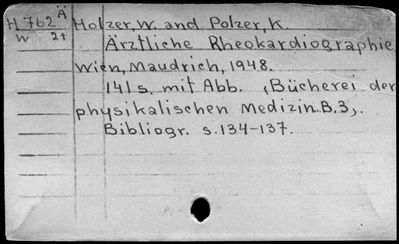 H 762 Ä Holzer, W. and Polzer, K.
W 2t Ärztliche Rheokardiographie
Wien, Maudrich, 1948.
141 s. mit Abb. (Bücherei der
physikalischen Medizin. B. 3).
Bibliogr. s. 134-137.